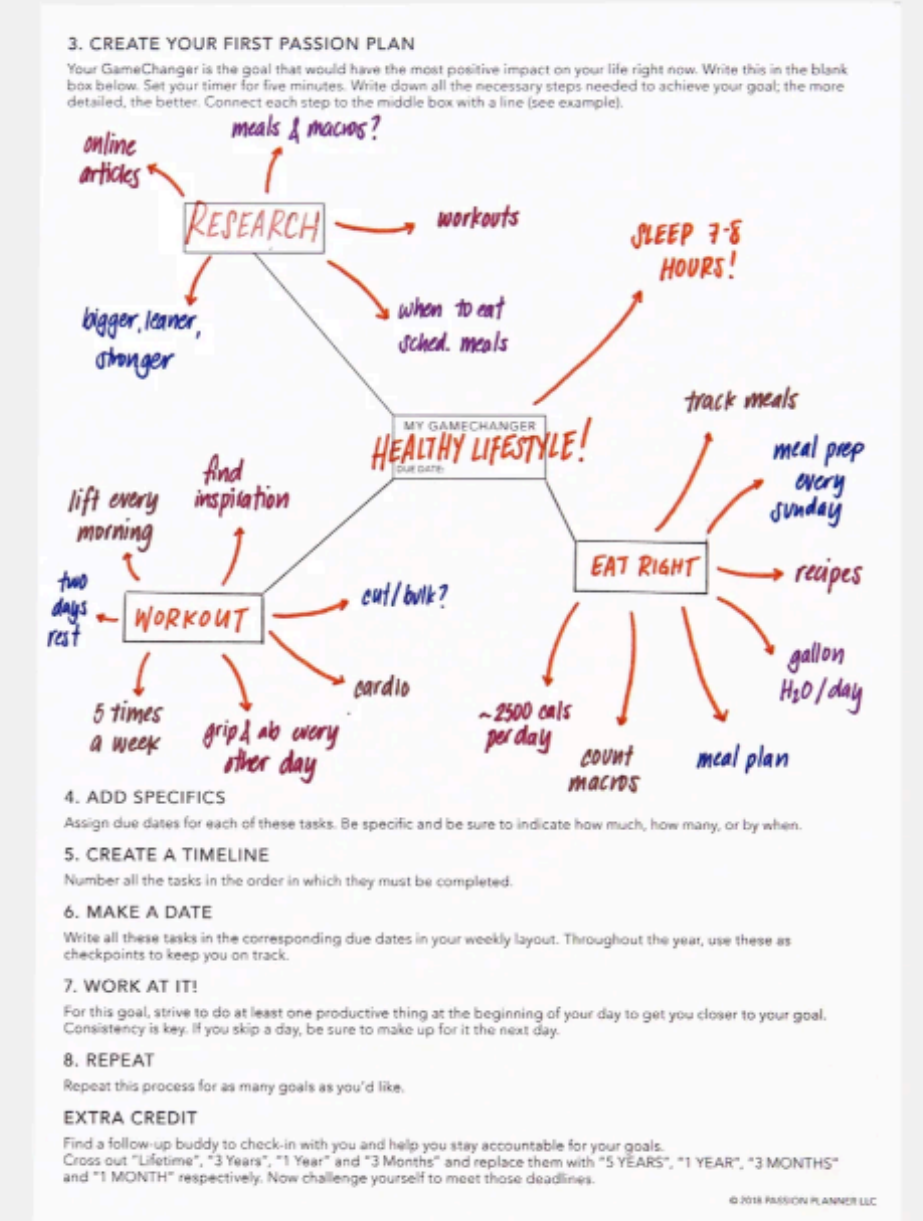 3. CREATE YOUR FIRST PASSION PLAN
Your GameChanger is the goal that would have the most positive impact on your life right now. Write this in the blank
box below. Set your timer for five minutes. Write down all the necessary steps needed to achieve your goal; the more
detailed, the better. Connect each step to the middle box with a line (see example).
meals & macros?
online
articles
RESEARCH
workouts
SLEEP 7-8
HOURS!
bigger, leaner,
stronger
when to eat
sched. meals
track meals
MY GAMECHANGER
HEALTHY LIFESTYLE!
DUE DATE:
meal prep
every
sunday
find
inspiration
lift every
morning
EAT RIGHT
recipes
two
days
rest
WORKOUT
cut/bulk?
gallon
H₂O/day
cardio
5 times
a week
grip & ab every
other day
~2500 cals
per day
count
macros
meal plan
4. ADD SPECIFICS
Assign due dates for each of these tasks. Be specific and be sure to indicate how much, how many, or by when.
5. CREATE A TIMELINE
Number all the tasks in the order in which they must be completed.
6. MAKE A DATE
Write all these tasks in the corresponding due dates in your weekly layout. Throughout the year, use these as
checkpoints to keep you on track.
7. WORK AT IT!
For this goal, strive to do at least one productive thing at the beginning of your day to get you closer to your goal.
Consistency is key. If you skip a day, be sure to make up for it the next day.
8. REPEAT
Repeat this process for as many goals as you'd like.
EXTRA CREDIT
Find a follow-up buddy to check-in with you and help you stay accountable for your goals.
Cross out "Lifetime", "3 Years", "1 Year" and "3 Months" and replace them with "5 YEARS", "1 YEAR", "3 MONTHS"
and "1 MONTH" respectively. Now challenge yourself to meet those deadlines.
© 2018 PASSION PLANNER LLC